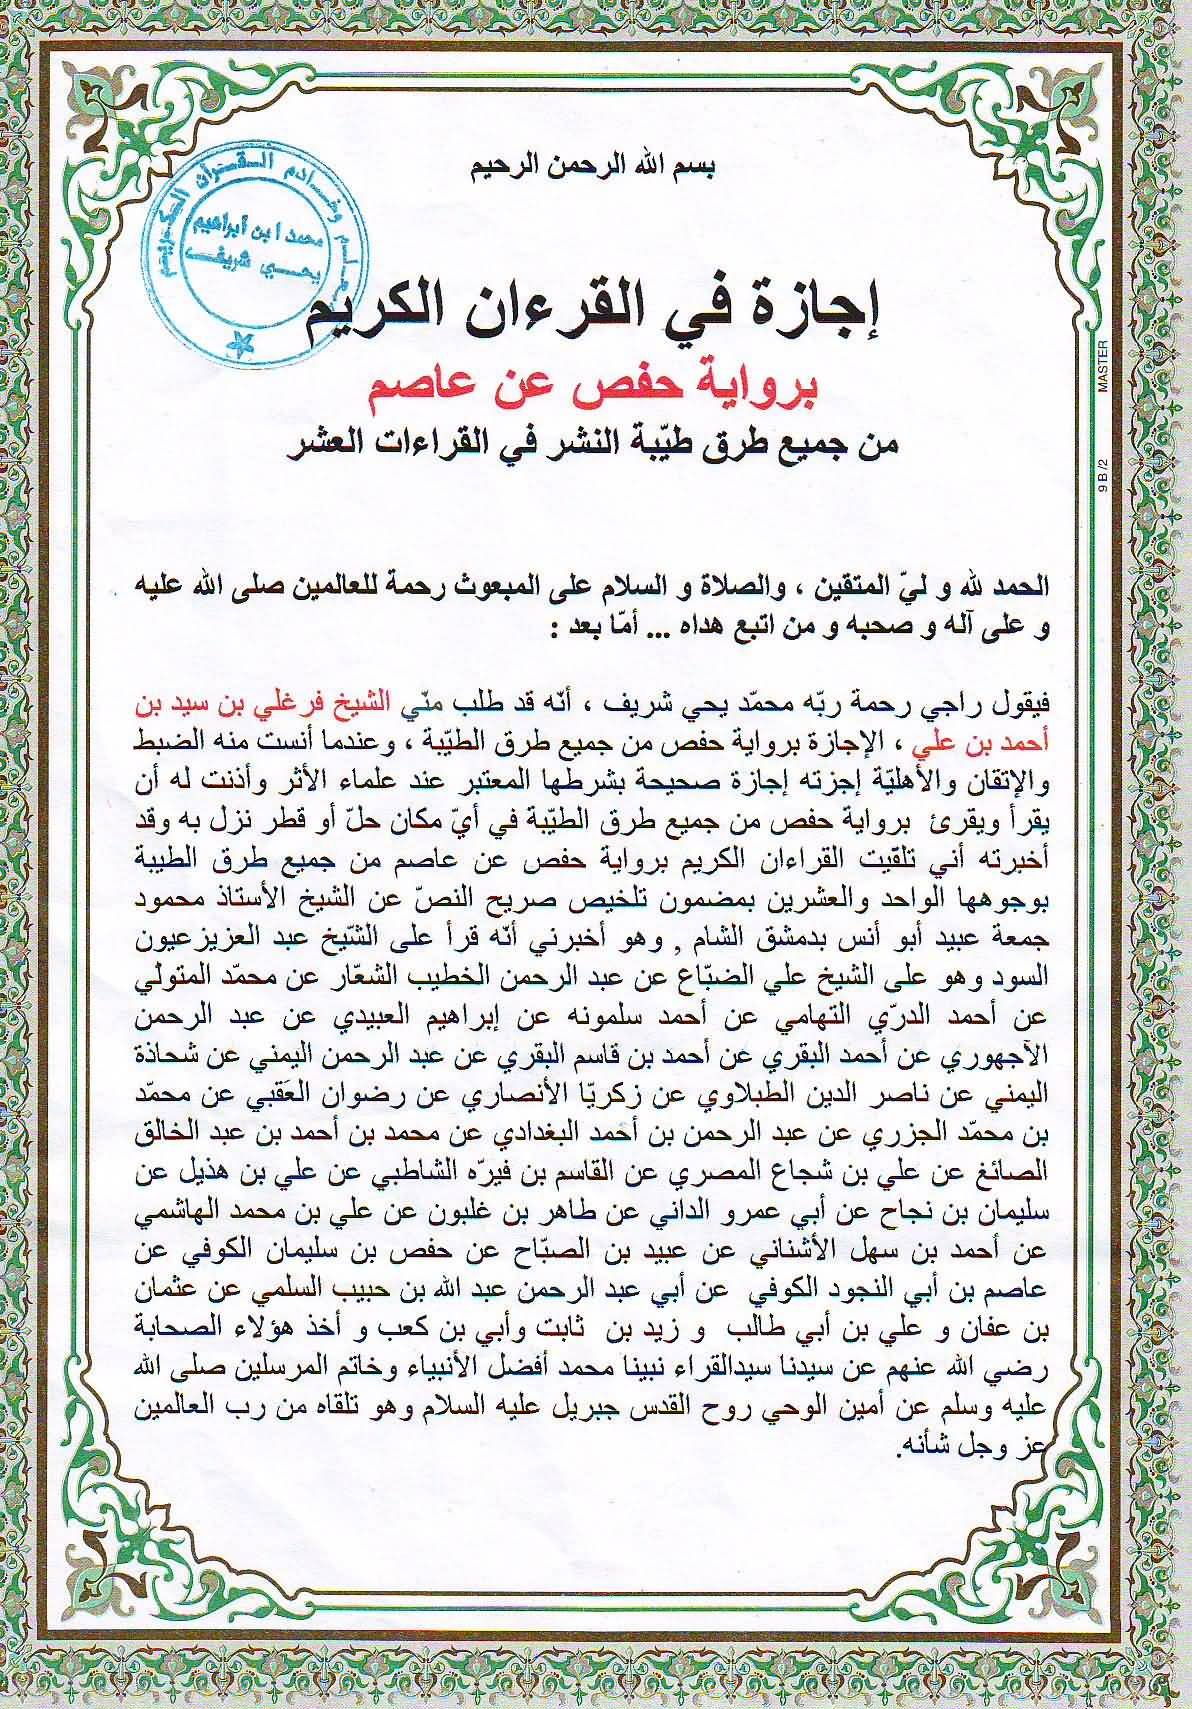 بسم الله الرحمن الرحيم
معلم وخادم القرآن الكريم
محمد ابن ابراهيم
يحي شريف
إجازة في القرءان الكريم
برواية حفص عن عاصم
من جميع طرق طيّبة النشر في القراءات العشر
MASTER
9 B /2
الحمد لله و ليّ المتقين ، والصلاة و السلام على المبعوث رحمة للعالمين صلى الله عليه
و على آله و صحبه و من اتبع هداه ... أمّا بعد :
فيقول راجي رحمة ربّه محمّد يحي شريف ، أنّه قد طلب منّي الشيخ فرغلي بن سيد بن
أحمد بن علي ، الإجازة برواية حفص من جميع طرق الطيّبة ، وعندما أنست منه الضبط
والإتقان والأهليّة إجزته إجازة صحيحة بشرطها المعتبر عند علماء الأثر وأذنت له أن
يقرأ ويقرئ برواية حفص من جميع طرق الطيّبة في أيّ مكان حلّ أو قطر نزل به وقد
أخبرته أني تلقّيت القراءان الكريم برواية حفص عن عاصم من جميع طرق الطيبة
بوجوهها الواحد والعشرين بمضمون تلخيص صريح النصّ عن الشيخ الأستاذ محمود
جمعة عبيد أبو أنس بدمشق الشام , وهو أخبرني أنّه قرأ على الشّيخ عبد العزيزعيون
السود وهو على الشيخ علي الضبّاع عن عبد الرحمن الخطيب الشعّار عن محمّد المتولّي
عن أحمد الدرّي التهامي عن أحمد سلمونه عن إبراهيم العبيدي عن عبد الرحمن
الآجهوري عن أحمد البقري عن أحمد بن قاسم البقري عن عبد الرحمن اليمني عن شحاذة
اليمني عن ناصر الدين الطبلاوي عن زكريّا الأنصاري عن رضوان العَقبي عن محمّد
بن محمّد الجزري عن عبد الرحمن بن أحمد البغدادي عن محمد بن أحمد بن عبد الخالق
الصائغ عن علي بن شجاع المصري عن القاسم بن فيرّه الشاطبي عن علي بن هذيل عن
سليمان بن نجاح عن أبي عمرو الداني عن طاهر بن غلبون عن علي بن محمد الهاشمي
عن أحمد بن سهل الأشناني عن عبيد بن الصبّاح عن حفص بن سليمان الكوفي عن
عاصم بن أبي النجود الكوفي عن أبي عبد الرحمن عبد الله بن حبيب السلمي عن عثمان
بن عفان و علي بن أبي طالب و زيد بن ثابت وأبي بن كعب و أخذ هؤلاء الصحابة
رضي الله عنهم عن سيدنا سيدالقراء نبينا محمد أفضل الأنبياء وخاتم المرسلين صلى الله
عليه وسلم عن أمين الوحي روح القدس جبريل عليه السلام وهو تلقاه من رب العالمين
عز وجل شأنه.